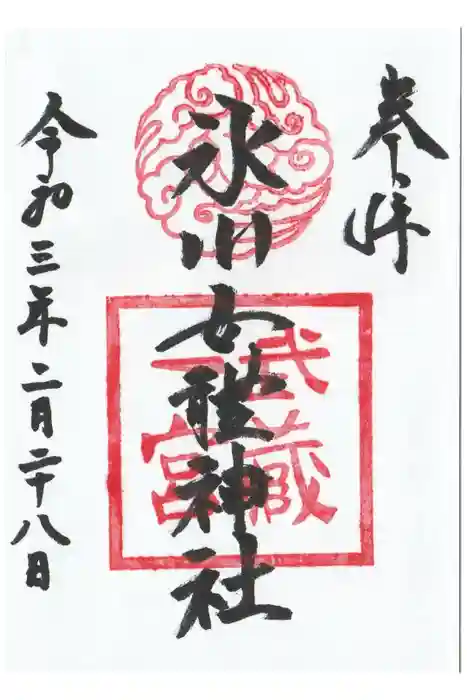 奉拝
氷川女體神社
武蔵
一宮
令和三年二月二十八日